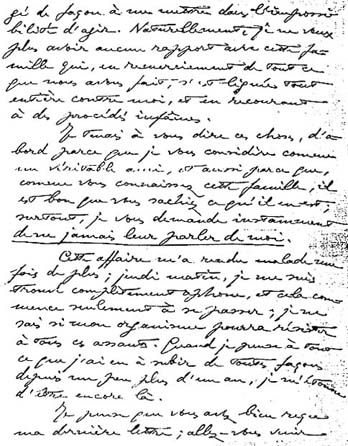 gé de façon à me mettre dans l'impossi
bilité d'agir. Naturellement, je ne veux
plus avoir aucun rapport avec cette fa-
mille qui, en remerciement de tout ce
que nous avons fait, s'est liguée tout
entière contre moi, et en recourant
à des procédés infâmes.
Je tenais à vous dire ces choses, d'a-
bord parce que je vous considère comme
un véritable ami, et aussi parce que,
comme vous connaissez cette famille, il
est bon que vous sachiez ce qu'il en est;
surtout, je vous demande instamment
de ne jamais leur parler de moi.
Cette affaire m'a rendu malade une
fois de plus; jeudi matin, je me suis
trouvé complètement aphone, et cela com
mence seulement à se passer; je ne
sais si mon organisme pourra résister
à tous ces assauts. Quand je pense à tout
ce que j'ai eu à subir de toutes façons
depuis un peu plus d'un an, je m'étonne
d'être encore là.
Je pense que vous avez bien reçu
ma dernière lettre; allez vous